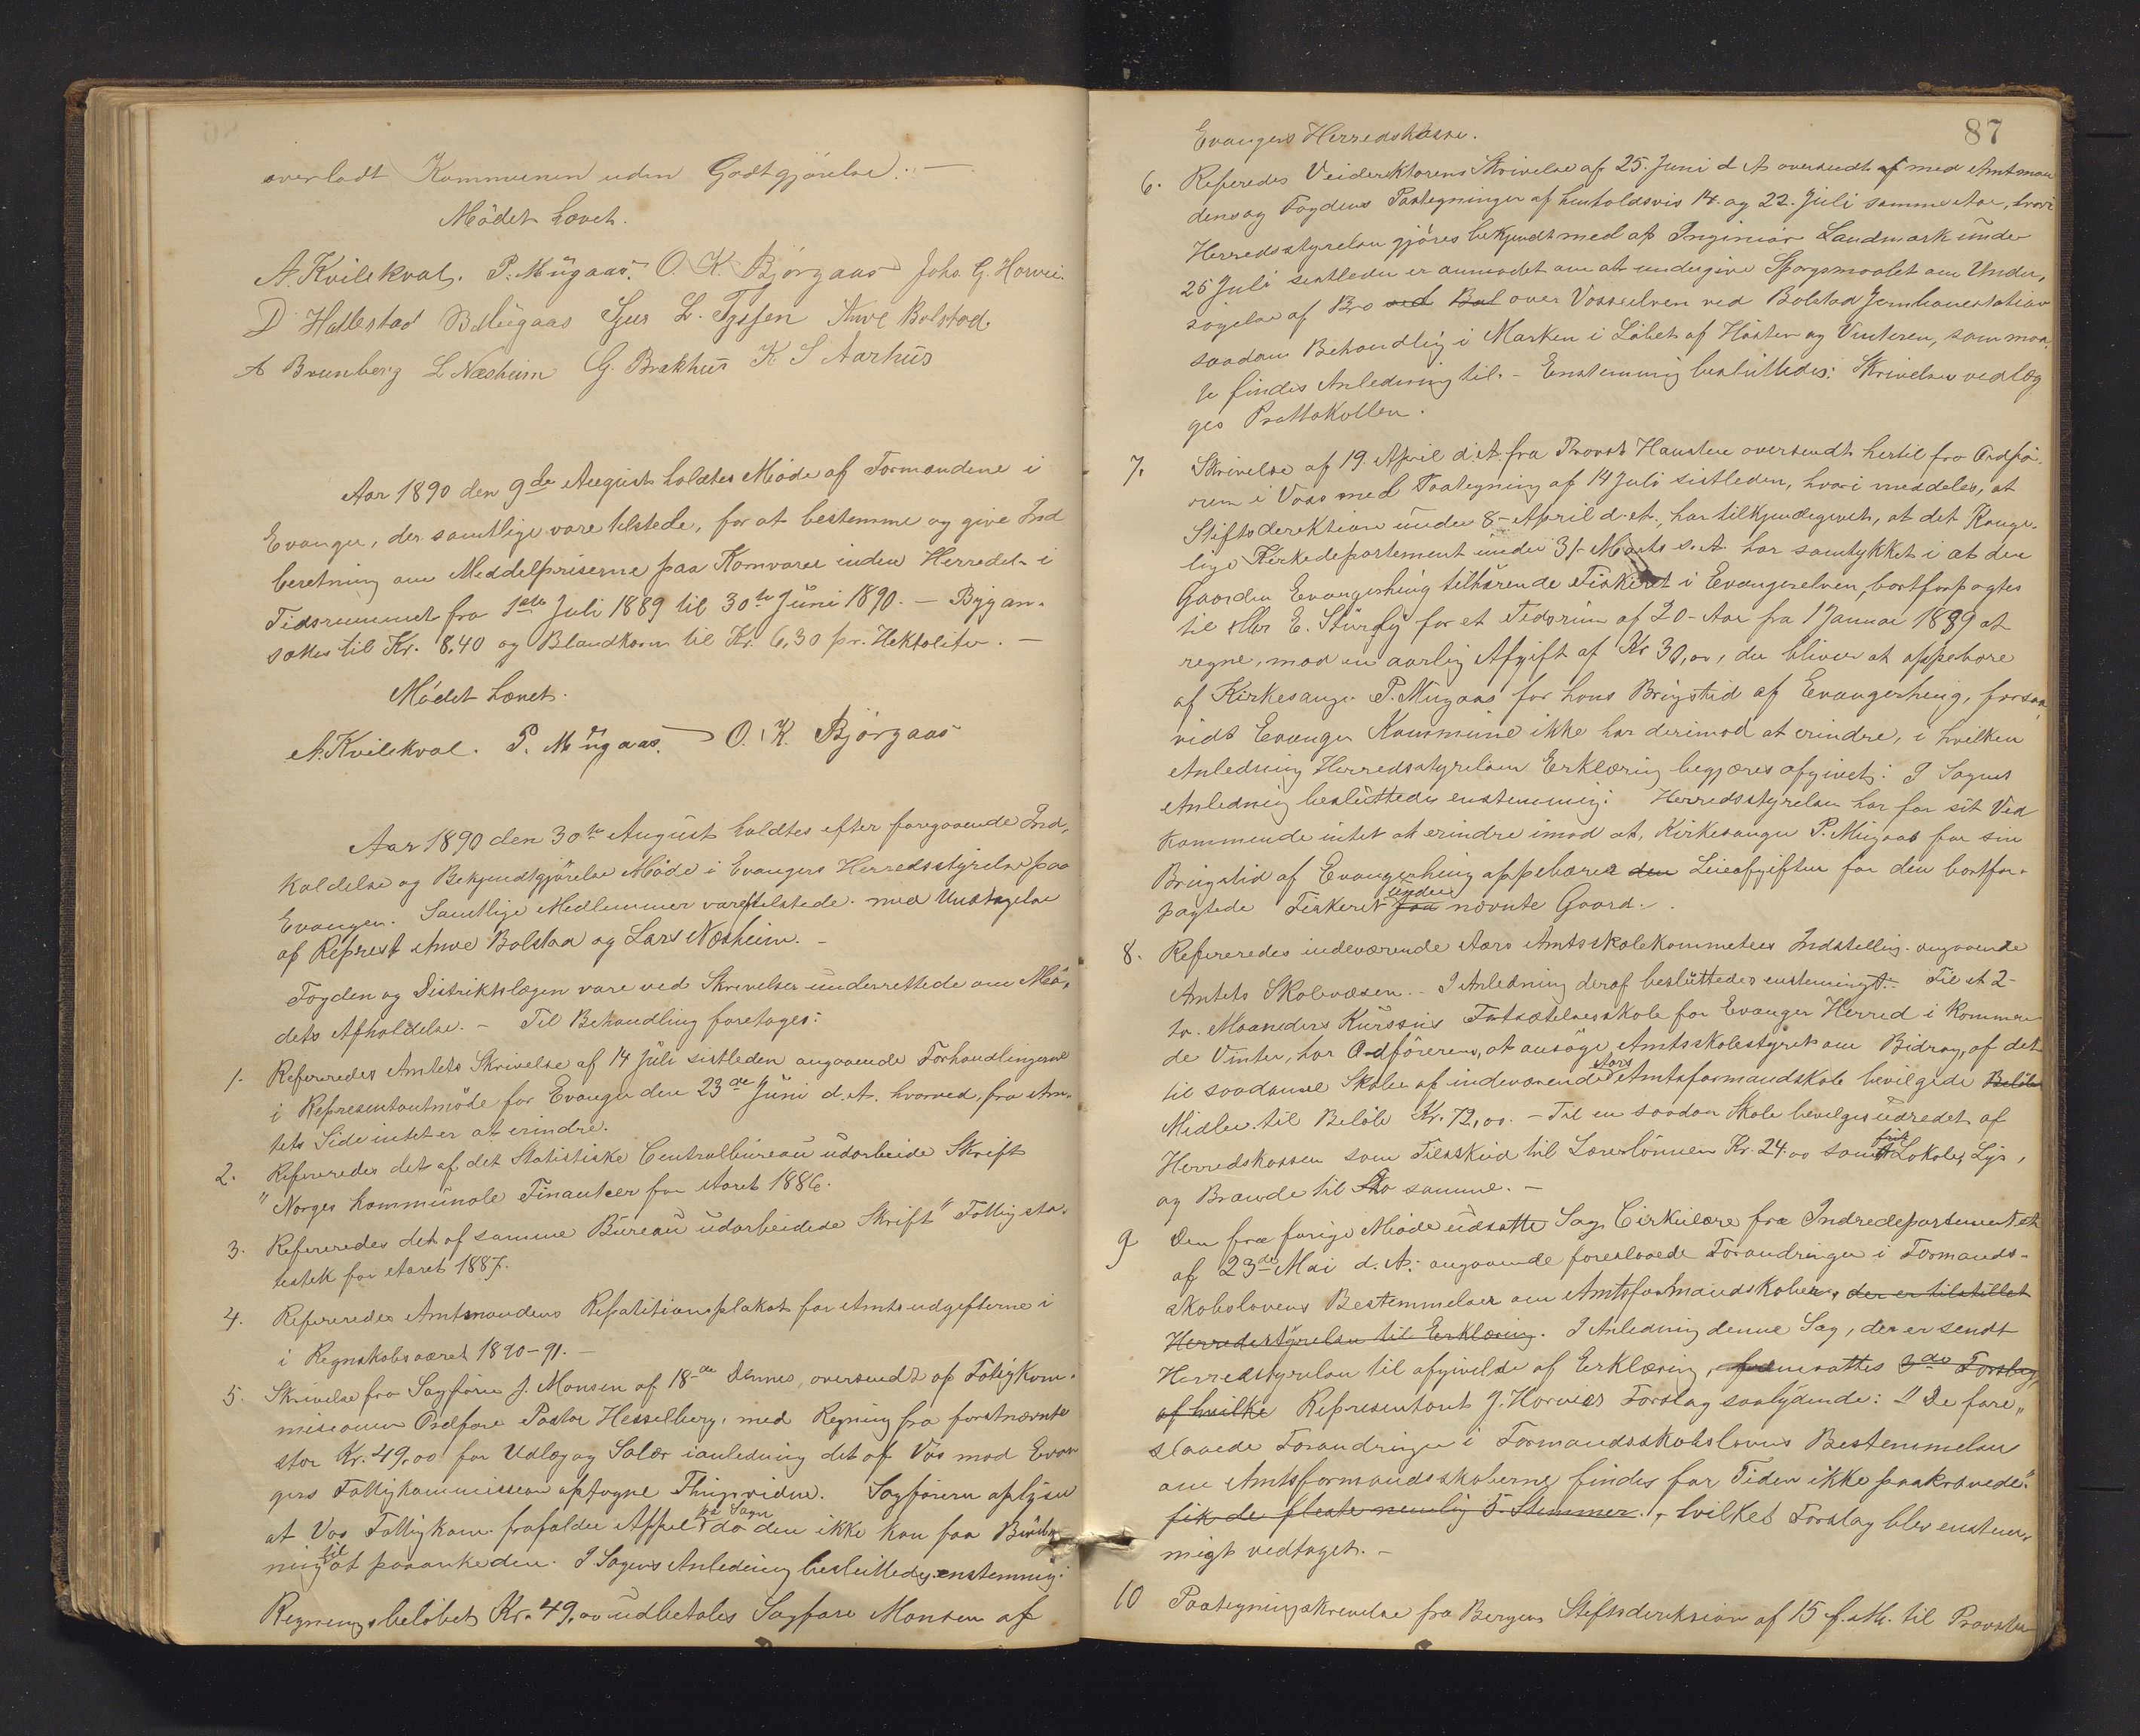 overladt Kommunen uden Godtgjörelse. —
Mödet hævet.
A. Kvilekval. P. Mügaas. O. K. Bjørgaas Johs. G. Horvei.
D Hallestad B Mügaas Sjur L. Tyssen Anve Bolstad.
A Brunberg L Næsheim G. Brækhus K S Aarhus
Aar 1890 den 9de August holdtes Möde af Formændene i
Evanger, der samtlige vare tilstede, for at bestemme og give Ind
beretning om Meddelpriserne paa Kornvarer inden Herredet i
Tidsrummet fra 1ste Juli 1889 til 30te Juni 1890. — Byg an-
sættes til Kr. 8,40 og Blandkorn til Kr. 6,30 pr. Hektoliter. —
Mödet hævet.
A. Kvilekval. P. Mügaas. O. K. Bjørgaas
Aar 1890 den 30te August holdtes efter foregaaende Ind,
kaldelse og Bekjendtgjörelse Möde i Evangers Herredsstyrelse paa
Evanger. Samtlige Medlemmer vare tilstede med Undtagelse
af Repræst Anve Bolstad og Lars Næsheim. —
Fogden og Distriktslægen vare ved Skrivelser underrettede om Mö,
dets Afholdelse. — Til Behandling foretoges:
1. Refereredes Amtets Skrivelse af 14 Juli sistleden angaaende Forhandlingerne
i Repræsentantmöde for Evanger den 23de Juni d. A. hvorved fra Am-
tets Side intet er at erindre.
2. Refereredes det af det Statistiske Centralbureau udarbeide Skrift
"Norges kommunale Finantser for Aaret 1886.
3. Refereredes det af samme Bureau udarbeidede Skrift "Fattigsta-
testek for Aaret 1887.
4. Refereredes Amtmandens Repatitionsplakat for Amtsudgifterne i
i Regnskabsaaret 1890-91. —
5. Skrivelse fra Sagförer J. Monsen af 18de Dennes, oversendt af Fatigkom-
misionen Ordföre Pastor Hesselberg, med Regning fra forstnævnte
stor Kr. 49,00 for Udlæg og Salær ianledning det af Vos mod Evan
gers Fattigkommission optagne Thingsvidne. Sagföreren oplyser
at Vos Fattigkom. frafalder Appel paa Sagen da den ikke kan faa Bevilg
ning til at paaanke den. I Sagens Anledning besluttedes enstemmig:
Regningsbeløbet Kr. 49,00 udbetales Sagfører Monsen af
87
Evangers Herredskasse.
6. Referedes Veidirektörens Skrivelse af 25. Juni d A oversendt af med Amtman
dens og Fogdens Paategninger af henholdsvis 14. og 22. Juli samme Aar, hvori
Herredsstyrelsen gjöres bekjendt med at Ingeniör Landmark under
25 Juli sistleden er anmodet om at undergive Spørgsmaalet om Under,
sögelse af Bro ved Bol over Vosseelven ved Bolstad Jernbanestation
saadan Behandlig i Marken i Løbet af Hösten og Vinteren, som maa
te findes Anledning til. — Enstemmig besluttedes: Skrivelsen vedlæg
ges Prottokollen.
7. Skrivelse af 19. April d. A. fra Provst Hanssen oversendt hertil fra Ordfø-
reren i Voss med Paategning af 14 Juli sistleden, hvori meddeles, at
Stiftsdirektion under 8 April d. A., har tilkjendegivet, at det Konge-
lige Kirkedepartement under 31 Marts s. A. har samtykket i at det
Gaarden Evangershæng tilhørende Fiskeret i Evangerelven, bortforpagtes
til Hr E. Sturgly for et Tidsrum af 20 Aar fra 1 Januar 1889 at
regne, mod en aarlig Afgift af Kr 30,00, der bliver at oppebære
af Kirkesanger P. Mügaas for hans Brugstid af Evangershæng, forsaa
vidt Evanger Kommune ikke har derimod at erindre, i hvilken
Anledning Herredsstyrelsen Erklæring begjæres afgivet: I Sagens
Anledning besluttedes enstemmig: Herredsstyrelsen har for sit Ved
kommende intet at erindre imod at, Kirkesanger P. Mügaas for sin
Brugstid af Evangershæng oppebærer den Leieafgiften for den bortfor-
pagtede Fiskeret fra under nævnte Gaard.
8. Refereredes indeværende Aars Amtsskolekommetees Indstillig angaaende
Amtets Skolevæsen. — I Anledning deraf besluttedes enstemmigt: Til et 2-
to Maaneders Kurssus Fortsættelsesskole for Evanger Herred i kommen
de Vinter, har Ordföreren, at ansöge Amtsskolestyret om Bidrag, af det
til saadanne Skoler af indeværende Aars Amtsformandskab bevilgede Beløb
Midler til Beløb Kr. 72,00. — Til en saadan Skole bevilges udredet af
Herredskassen som Tilskud til Lærerlönnen Kr. 24.00 samt frit Lokale, Lys,
og Brænde til Sko samme. —
9 Den fra forige Möde udsatte Sag, Cirkulære fra Indredepartementet
af 23de Mai d. A. angaaende foreslaaede Forandringer i Formands-
skabslovens Bestemmelser om Amtsformandskaber, der er tilstillet
Herredsstyrelsen til Erklæring. I Anledning denne Sag, der er sendt
Herredstyrelsen til afgivelse af Erklæring, fremsattes 2de Forslag,
af hvilke Representant J. Horveis Forslag saalydende: "De fore„
slaaede Forandringer i Formandsskabslovens Bestemmelser
om Amtsformandsskaberne findes for Tiden ikke paakrævede."
fik de fleste nemlig 5. Stemmer. , hvilket Forslag blev enstem„
migt vedtaget. —
10 Paategningskrivelse fra Bergens Stiftsdirektsion af 15 f. Mts. til Provsten